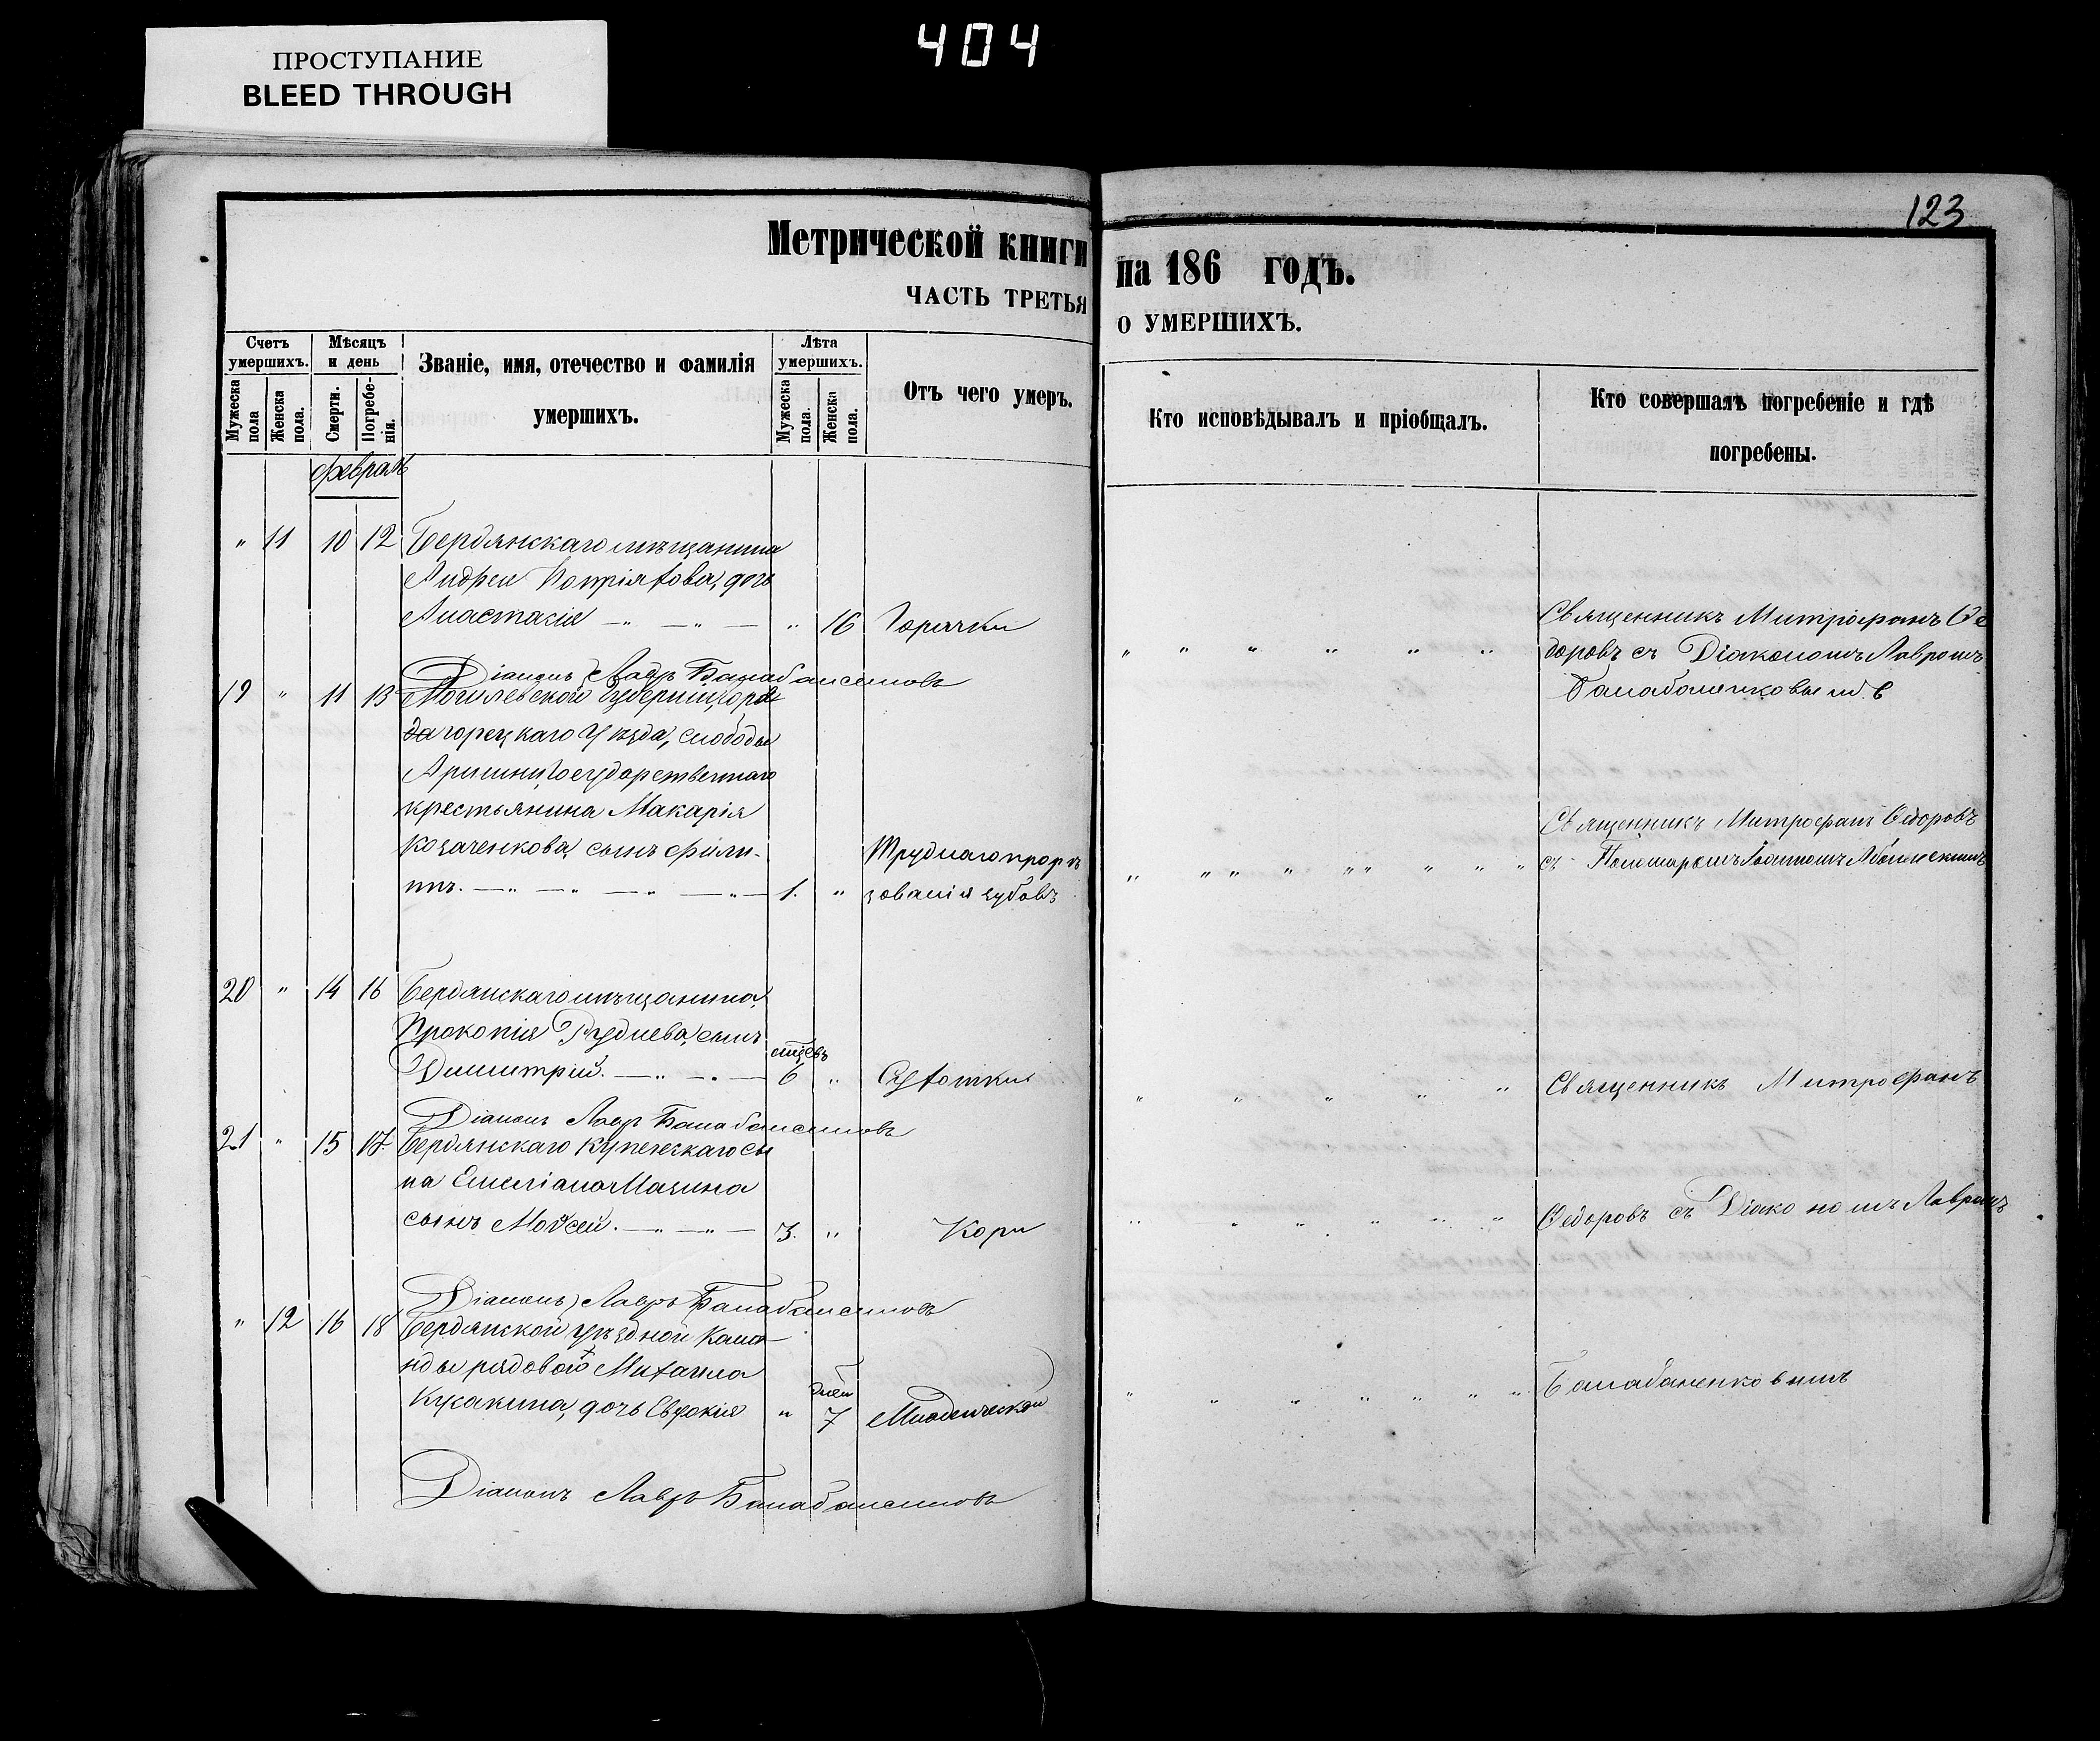 404
ПРОСТУПАНИЕ
BLEED THROUGH
123
Метрической книги на 186 годъ.
ЧАСТЬ ТРЕТЬЯ О УМЕРШИХЪ.
Счетъ умершихъ.
Мужеска пола
Женска пола.
Мѣсяцъ и день
Смерти.
Погребенія.
Званіе, имя, отечество и фамилія
умершихъ.
Лѣта умершихъ.
Мужеска пола.
Женска пола.
Отъ чего умеръ.
Кто исповѣдывалъ и пріобщалъ.
Кто совершалъ погребеніе и гдѣ
погребены.
февраль
" 11 10 12 Бердянскаго мѣщанина
Андрея дочь
Анастасія " 16 Горячки
Священникъ Митрофанъ Ѳе
доровъ съ Діакономъ Лавромъ
Діаконъ Лавръ
19 " 11 13 Могилевской Губерніи,
горецкаго Уѣзда, слободы
Государственнаго
крестьянина Макарія
Козаченкова, сынъ Фили-
ппъ. 1. "
Труднаго прорѣ
зованія зубовъ
Священникъ Митрофанъ Ѳедоровъ
съ Пономаремъ
20 " 14 16 Бердянскаго мѣщанина
Прокопія Руднева, сынъ
Димитрій. мѣсяцевъ 6 " Сухотки
Священникъ Митрофанъ
Діаконъ Лавръ
21 " 15 17. Бердянскаго купеческаго сы
на Емеліана Мазина
сынъ Моѵсей. 3. " Кори
Ѳедоровъ съ Діакономъ Лавромъ
Діаконъ Лавръ
" 12 16 18 Бердянской уѣздной Кома
нды рядоваго Михаила
Кусакина, дочь Евдокія " дней 7 Младенческой
Балабаненковымъ
Діаконъ Лавръ